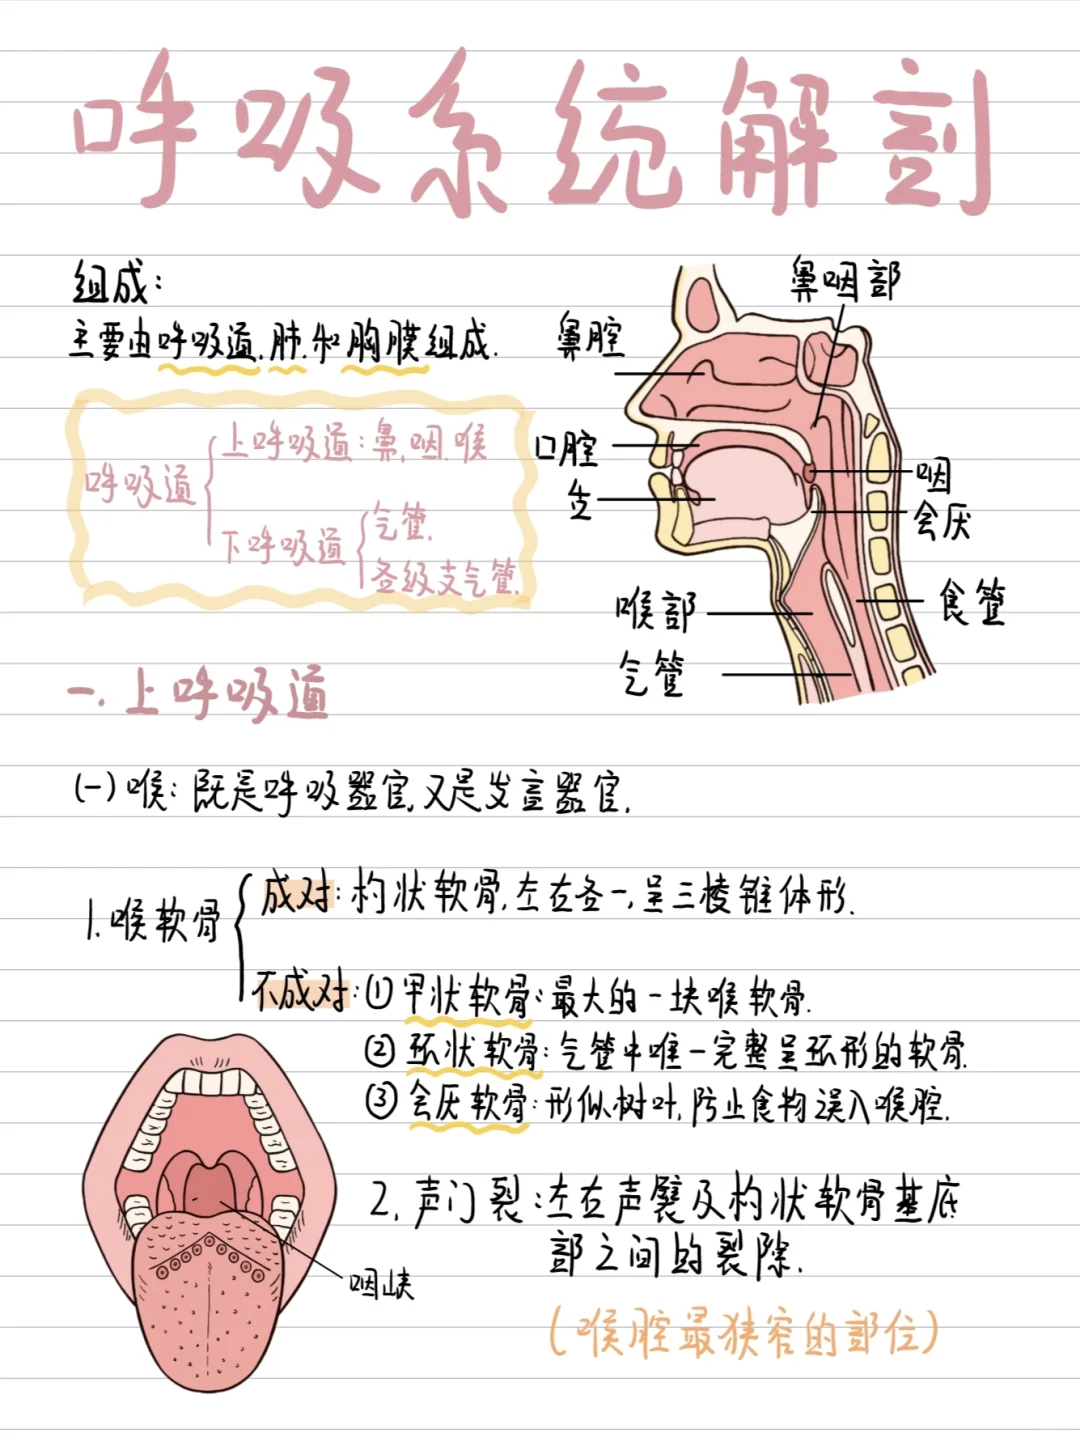 呼吸系统解剖
组成:
主要由呼吸道、肺和胸膜组成.
呼吸道
上呼吸道:鼻、咽、喉
下呼吸道
气管.
各级支气管.
鼻咽部
鼻腔
口腔
舌
咽
会厌
喉部
食管
气管
一.上呼吸道
(一)喉:既是呼吸器官,又是发音器官.
1.喉软骨
成对:杓状软骨,左右各一,呈三棱锥体形.
不成对:①甲状软骨:最大的一块喉软骨.
②环状软骨:气管中唯一完整呈环形的软骨.
③会厌软骨:形似树叶,防止食物误入喉腔.
2.声门裂:左右声襞及杓状软骨基底
部之间的裂隙.
咽峡
(喉腔最狭窄的部位)